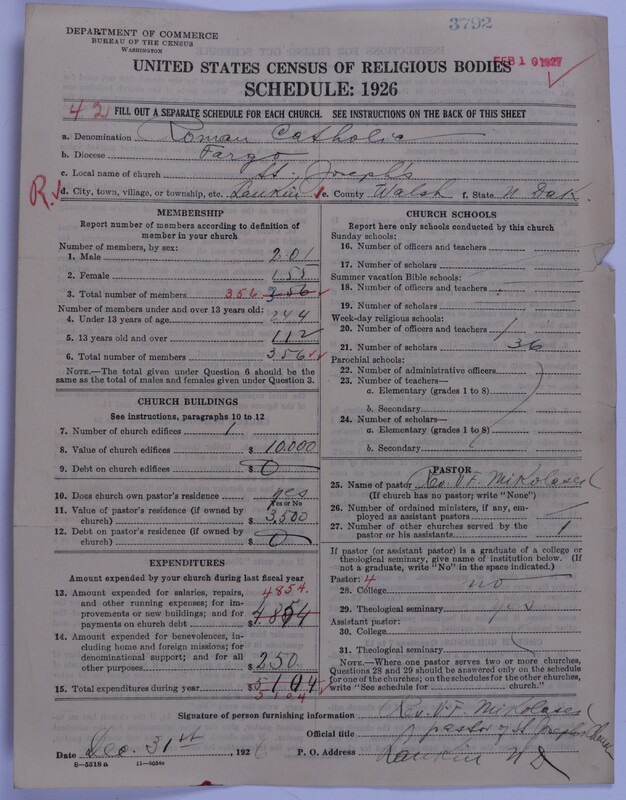 3792
DEPARTMENT OF COMMERCE
BUREAU OF THE CENSUS
WASHINGTON
FEB 10 1927
UNITED STATES CENSUS OF RELIGIOUS BODIES
SCHEDULE: 1926
42 FILL OUT A SEPARATE SCHEDULE FOR EACH CHURCH. SEE INSTRUCTIONS ON THE BACK OF THIS SHEET
a. Denomination Roman Catholic
b. Diocese Fargo
c. Local name of church St. Joseph's
R. d. City, town, village, or township, etc. Lankin e. County Walsh f. State N Dak.
MEMBERSHIP
Report number of members according to definition of
member in your church
Number of members, by sex:
1. Male 201
2. Female 155
3. Total number of members 356 356
Number of members under and over 13 years old:
4. Under 13 years of age 244
5. 13 years old and over 112
6. Total number of members 356
NOTE.—The total given under Question 6 should be
same as the total of males and females given under Question 3.
CHURCH BUILDINGS
See instructions, paragraphs 10 to 12
7. Number of church edifices 1
8. Value of church edifices $ 10.000
9. Debt on church edifices $ 0
10. Does church own pastor's residence yes
Yes or No
11. Value of pastor's residence (if owned by
church) $ 3,500
12. Debt on pastor's residence (if owned by
church) $ 0
EXPENDITURES
Amount expended by your church during last fiscal year
13. Amount expended for salaries, repairs, 4854.
and other running expenses; for im-
provements or new buildings; and for
payments on church debt $ 4854
14. Amount expended for benevolences, in-
cluding home and foreign missions; for
denominational support; and for all
other purposes $ 250
15. Total expenditures during year $ 5104
5104
CHURCH SCHOOLS
Report here only schools conducted by this church
Sunday schools:
16. Number of officers and teachers
17. Number of scholars
Summer vacation Bible schools:
18. Number of officers and teachers
19. Number of scholars
Week-day religious schools:
20. Number of officers and teachers 1
21. Number of scholars 36
Parochial schools:
22. Number of administrative officers
23. Number of teachers—
a. Elementary (grades 1 to 8)
b. Secondary
24. Number of scholars—
a. Elementary (grades 1 to 8)
b. Secondary
PASTOR
25. Name of pastor Rev. V F Mikolasek
(If church has no pastor; write "None")
26. Number of ordained ministers, if any, em-
ployed as assistant pastors
27. Number of other churches served by the
pastor or his assistants 1
If pastor (or assistant pastor) is a graduate of a college or
theological seminary, give name of institution below. (If
not a graduate, write "No" in the space indicated.)
Pastor: 4
28. College no
29. Theological seminary yes
Assistant pastor:
30. College
31. Theological seminary
NOTE.—Where one pastor serves two or more churches,
Questions 28 and 29 should be answered only on the schedule
for one of the churches; on the schedules for the other churches,
write "See schedule for church."
Signature of person furnishing information Rev. V F Mikolasek
Official title pastor of St Joseph's Church
Date Dec. 31st, 1926 P. O. Address Lankin N D
8—5518 a